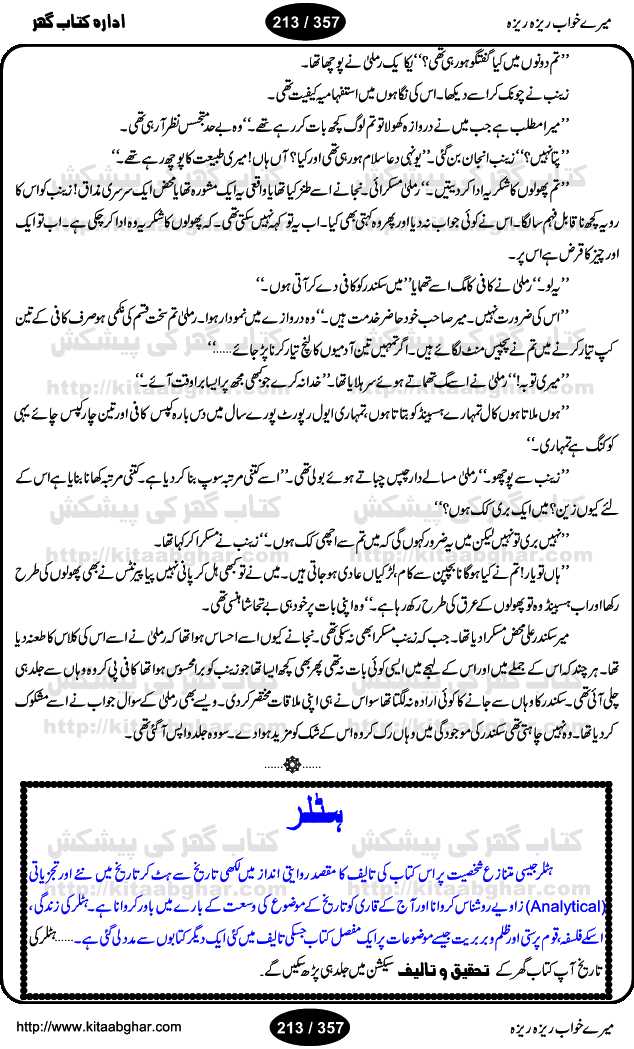 میرے خواب ریزہ ریزہ
213 / 357
ادارہ کتاب گھر
’’تم دونوں میں کیا گفتگو ہو رہی تھی؟‘‘ یکا یک رملیٰ نے پوچھا تھا۔
زینب نے چونک کر اسے دیکھا۔ اس کی نگاہوں میں استفہامیہ کیفیت تھی۔
’’میرا مطلب ہے جب میں نے دروازہ کھولا تو تم لوگ کچھ بات کر رہے تھے۔‘‘ وہ بے حد متجسس نظر آرہی تھی۔
’’پتا نہیں؟‘‘ زینب انجان بن گئی۔ ’’یونہی دعا سلام ہو رہی تھی اور کیا؟ آں ہاں! میری طبیعت کا پوچھ رہے تھے۔‘‘
’’تم پھولوں کا شکریہ ادا کر دیتیں۔‘‘ رملیٰ مسکرائی۔ نجانے اسے طنز کیا تھا یا واقعی یہ ایک مشورہ تھا یا محض ایک سرسری مذاق! زینب کو اس کا
رویہ کچھ نا قابل فہم سا لگا۔ اس نے کوئی جواب نہ دیا اور پھر وہ کہتی بھی کیا۔ اب یہ تو کہہ نہیں سکتی تھی۔ کہ پھولوں کا شکریہ وہ ادا کر چکی ہے۔ اب تو ایک
اور چیز کا قرض ہے اس پر۔
’’یہ لو۔‘‘ رملیٰ نے کافی کا مگ اسے تھمایا ’’میں سکندر کو کافی دے کر آتی ہوں۔‘‘
’’اس کی ضرورت نہیں۔ میر صاحب خود حاضر خدمت ہیں۔‘‘ وہ دروازے میں نمودار ہوا۔ رملیٰ تم سخت قسم کی نکمی ہو صرف کافی کے تین
کپ تیار کرنے میں تم نے پچیس منٹ لگائے ہیں۔ اگر تمہیں تین آدمیوں کا لنچ تیار کرنا پڑ جائے......‘‘
’’میری توبہ!‘‘ رملیٰ نے اسے مگ تھماتے ہوئے سر ہلایا تھا۔ ’’خدا نہ کرے جو کبھی مجھ پر ایسا برا وقت آئے۔‘‘
’’ہوں ملاتا ہوں کال تمہارے ہسبینڈ کو بتاتا ہوں، تمہاری ایول رپورٹ پورے سال میں دس بارہ کپس کافی اور تین چار کپس چائے یہی
کوکنگ ہے تمہاری۔‘‘
’’زینب سے پوچھو۔‘‘ رملیٰ مسالے دار چپس چباتے ہوئے بولی تھی۔ ’’اسے کتنی مرتبہ سوپ بنا کر دیا ہے۔ کتنی مرتبہ کھانا بنایا ہے اس کے
لئے کیوں زین؟ میں ایک بری کک ہوں؟‘‘
’’نہیں بری تو نہیں لیکن میں یہ ضرور کہوں گی کہ میں تم سے اچھی کک ہوں۔‘‘ زینب نے مسکرا کر کہا تھا۔
’’ہاں تو یار! تم نے کیا ہوگا نا بچپن سے کام، لڑکیاں عادی ہو جاتی ہیں۔ میں نے تو کبھی ہل کر پانی نہیں پیا پیرنٹس نے بھی پھولوں کی طرح
رکھا اور اب ہسبینڈ وہ تو پھولوں کے عرق کی طرح رکھ رہا ہے۔‘‘ وہ اپنی بات پر خود ہی بے تحاشا ہنسی تھی۔
میر سکندر علی محض مسکرا دیا تھا۔ جب کہ زینب مسکرا بھی نہ سکی تھی۔ نجانے کیوں اسے احساس ہوا تھا کہ رملیٰ نے اسے اس کی کلاس کا طعنہ دیا
تھا۔ ہر چند کہ اس کے جملے میں اور اس کے لہجے میں ایسی کوئی بات نہ تھی پھر بھی کچھ ایسا تھا جو زینب کو برا محسوس ہوا تھا کافی پی کر وہ وہاں سے جلد ہی
چلی آئی تھی۔ سکندر کا وہاں سے جانے کا کوئی ارادہ نہ لگتا تھا سو اس نے ہی اپنی ملاقات مختصر کر دی۔ ویسے بھی رملیٰ کے سوال جواب نے اسے مشکوک
کر دیا تھا۔ وہ نہیں چاہتی تھی سکندر کی موجودگی میں وہاں رک کر وہ اس کے شک کو مزید ہوا دے۔ سو وہ جلد واپس آ گئی تھی۔
......۞......
ہٹلر
ہٹلر جیسی متنازع شخصیت پر اس کتاب کی تالیف کا مقصد روایتی انداز میں لکھی تاریخ سے ہٹ کر تاریخ میں نئے اور تجزیاتی
(Analytical) زاویے روشناس کروانا اور آج کے قاری کو تاریخ کے موضوع کی وسعت کے بارے میں باور کروانا ہے۔ ہٹلر کی زندگی،
اسکے فلسفہ، قوم پرستی اور ظلم و بربریت جیسے موضوعات پر ایک مفصل کتاب جسکی تالیف میں کئی ایک دیگر کتابوں سے مدد لی گئی ہے۔...... ہٹلر کی
تاریخ آپ کتاب گھر کے تحقیق و تالیف سیکشن میں جلد ہی پڑھ سکیں گے۔
کتاب گھر کی پیشکش
http://kitaabghar.com
میرے خواب ریزہ ریزہ
213 / 357
http://www.kitaabghar.com